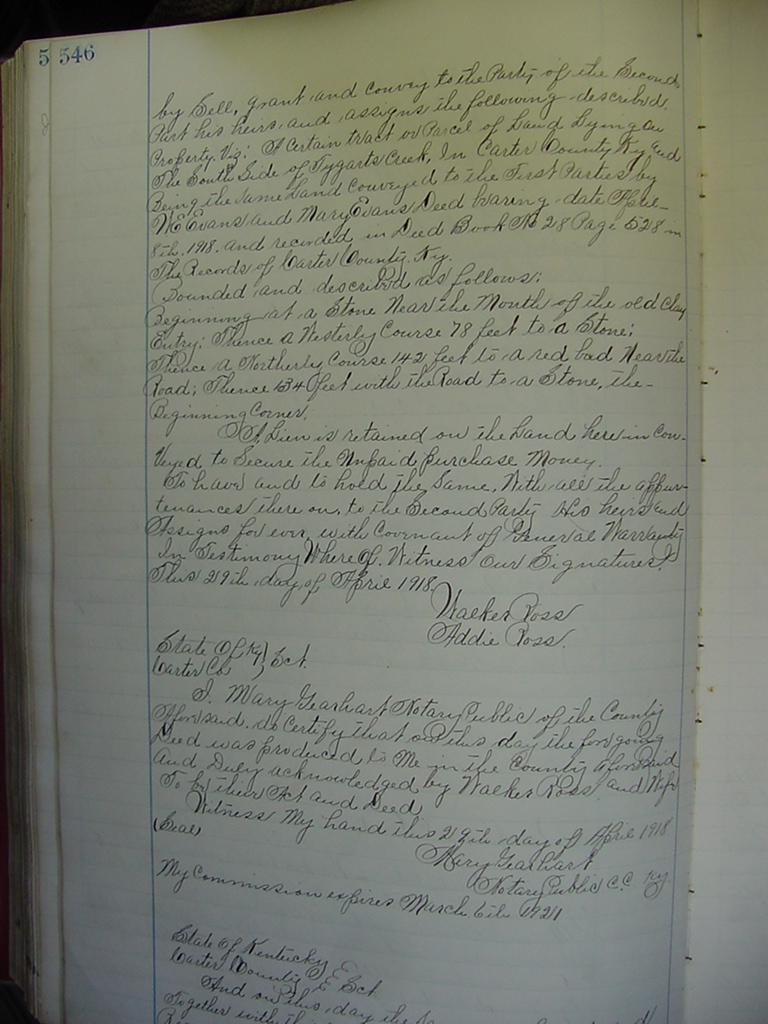 5 546
by Sell, grant and convey to the Party of the Second
Part his heirs and assigns the following described
Property, Viz: A Certain tract or Parcel of Land Lying on
The South Side of Tygarts Creek, In Carter County Ky and
Being the same Land Conveyed to the First Parties by
W E Evans and Mary Evans Deed bearing date April
8th, 1918. and recorded in Deed Book No 28 Page 528 in
The Records of Carter County, Ky.
Bounded and described as follows:
Beginning at a Stone Near the Mouth of the old Clay
Entry; Thence a Westerly Course 78 feet to a Stone;
Thence a Northerly Course 142 feet to a red bud Near the
Road; Thence 134 feet with the Road to a Stone, the
Beginning Corner.
A Lien is retained on the Land here in Con-
veyed to Secure the Unpaid purchase Money.
To have and to hold the same, With all the appur-
tenances there on, to the Second Party His heirs and
Assigns for ever, with Covenant of General Warranty
In Testimony Where Of, Witness Our Signatures,
This 29th day of April 1918.
Walker Ross
Addie Ross.
State Of Ky } Sct.
Carter Co
I, Mary Gearhart Notary Public of the County
Aforesaid, do Certify that on this day the for going
Deed was produced to Me in the County Aforesaid
And Duly acknowledged by Walker Ross and Wife
To be their Act and Deed
Witness My hand this 29th day of April 1918
(Seal) Mary Gearhart
Notary Public C.C. Ky.
My Commission expires March 6th 1921
State Of Kentucky
Carter County Sct
And on this day the
Together with th